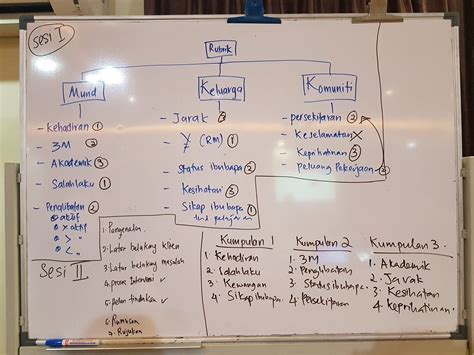 Sesi I
Rubrik
Murid
- Kehadiran ①
- 3M ②
- Akademik ③
- Salahlaku ①
- Penglibatan ②
① aktif
② x aktif
③ >
④ <
Keluarga
- Jarak ③
- Y (RM) ①
- Status ibubapa ②
- Kesihatan ③
- Sikap ibubapa ①
Komuniti
- persekitaran ②
- Keselamatan X
- Keprihatinan ③
- peluang Pekerjaan ②
Sesi II
1. Pengenalan.
2. Latar belakang klien
3. Latar belakang masalah
4. proses Intervensi ✓
5. pelan tindakan ✓
6. Rumusan
7. Rujukan
Kumpulan 1
1. Kehadiran
2. Salahlaku
3. Kewangan
4. Sikap ibubapa
Kumpulan 2
1. 3M
2. Penglibatan
3. Status ibubapa
4. Persekitaran
Kumpulan 3.
1. Akademik
2. Jarak
3. Kesihatan
4. Keprihatinan.